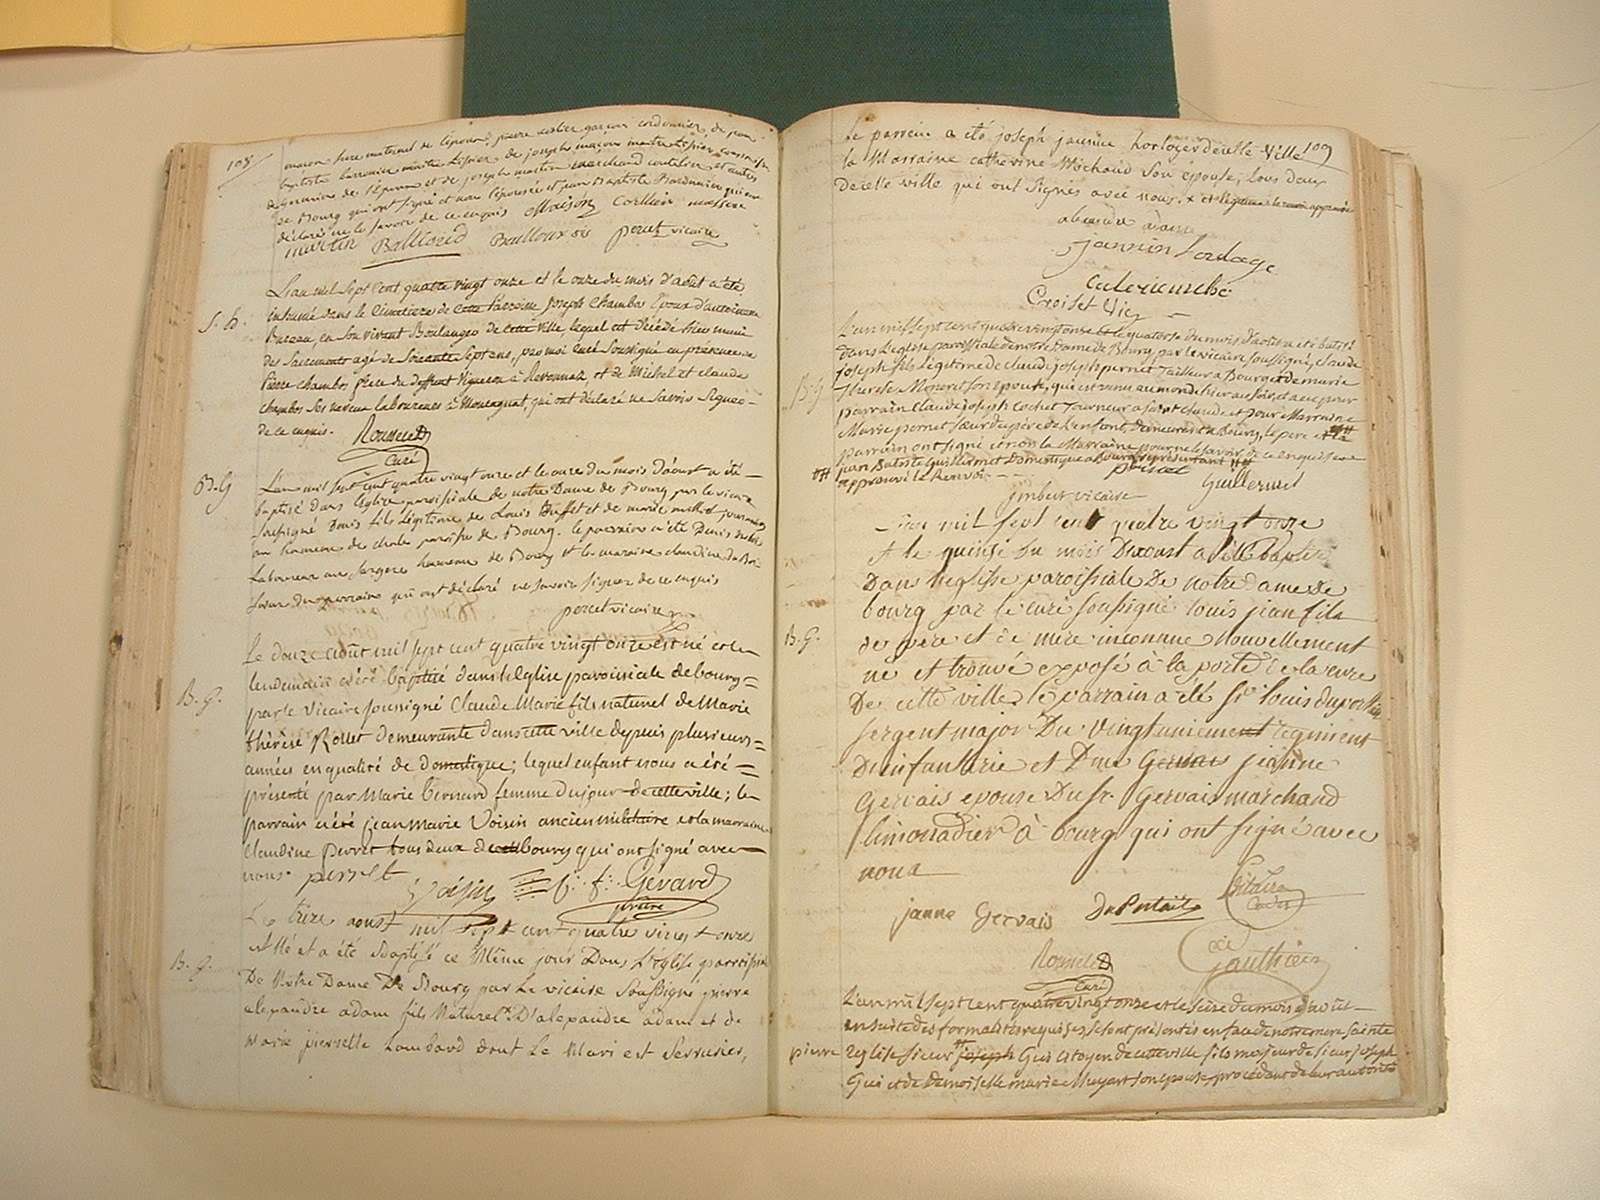 108
maçon frere maternel de l'epoux, pierre garçon cordonnier, de jean
baptiste maitre de joseph maçon maitre
de Germaine de l'épouse et de joseph martin marchand coutelier et autres
de Bourg qui ont signé et non l'épousée et jean Baptiste Bardonnier qui ont
déclaré ne le savoir de ce enquis Maison Corllier massere
martin Balliord perret vicaire
L'an mil sept cent quatre vingt onze et le onze du mois d'août a été
S. D. inhumé dans le Cimetiere de cette Paroisse joseph Chambos Epoux d'antoinette
Buzeau, en son vivant Boulanger de cette ville lequel est décédé hier munie
des Sacrements agé de soixante sept ans, par moi curé soussigné en présence de
Pierre chambos frere du deffunt Vigneron à Revonnas, et de Michel et claude
chambos ses neveux laboureurs à Montagnat, qui ont déclaré ne savoir signer
de ce enquis. Rousselet
Curé
B. G L'an mil sept cent quatre vingt onze et le onze du mois d'aoust a été
baptisé dans l'eglise paroissiale de notre Dame de Bourg par le vicaire
soussigné Denis fils légitime de Louis Buffet et de marie millet journaliers
au hameau de chale paroisse de Bourg. le parrain a été Denis
Laboureur au hameau de Bourg et la maraine claudine du Bois
sœur du parrain qui ont déclaré ne savoir signer de ce enquis
perret vicaire
Le douze août mil sept cent quatre vingt onze est né et le
B. G. lendemain a été baptisé dans l'Eglise paroissiale de bourg
par le Vicaire soussigné Claude Marie fils naturel de Marie
thérèse Rollet demeurante dans cette ville depuis plusieurs
années en qualité de domestique; lequel enfant nous a été
présenté par Marie bernard femme dujour de cette ville; le
parrain a été jean Marie Voisin ancien militaire et la marraine
Claudine perret tous deux de bourg qui ont signé avec
nous. perret Voisin C: f: Gévard
prêtre
Le treize aoust mil sept cent quatre vingt onze
B. G. est né et a été Baptisé ce Même jour Dans l'Eglise parroissiale
De Notre Dame De Bourg par Le vicaire soussigné pierre
alexandre adam fils Naturel D'alexandre adam et de
Marie pierrette Lombard dont Le Mari est serrurier,
109
le parrein a été joseph jannin horloger de cette Ville
la Marraine catherine Michaud son épouse, tous deux
De cette ville qui ont signés avec nous,
alexandre adam
jannin l'orloge
Caterie miché
Croiset Vic
L'an mil sept cent quatre vingt onze et le quatorze du mois d'aout a été batisé
dans l'eglise paroissiale de notre Dame de Bourg, par le vicaire soussigné, claude
B. G joseph fils légitime de claude joseph pernet tailleur a Bourg et de marie
therese Monnet son epouse, qui est venu au monde hier au soir, et a eu pour
parrain claude joseph Cochet tourneur a saint claude et pour Marraine
Marie pernet sœur du pere de l'enfant, demeurant a Bourg, le pere et le
parrain ont signé et non la Marraine pour ne le savoir de ce enquise
jean Batiste Guillermet domestique a Bourg representant
approuvé le renvoi. pernet Guillermet
jmbert vicaire
L'an mil sept cent quatre vingt onze
et le quinze du mois D'aoust a été baptisé
Dans l'eglise paroissiale De notre dame De
bourg par le curé soussigné louis jean fils
B. G. de pere et de mere inconnue nouvellement
né et trouvé exposé à la porte de la cure
De cette ville le parrain a été Sr louis duportail
sergent major Du vingt unieme regiment
D'infanterie et Dme jeanne
Gervais epouse Du Sr. Gervais marchand
limonadier à bourg qui ont signé avec
nous
janne Gervais DuPortail
Rousselet
Curé
Gauthier
L'an mil sept cent quatre vingt onze et le seize du mois d'août
ensuite des formalités requises, se sont présentés en face de notre mere sainte
pierre Eglise sieur joseph Gui citoyen de cette ville fils majeur de sieur joseph
Gui et de demoiselle marie Muyart son epouse, procédant de leur autorité